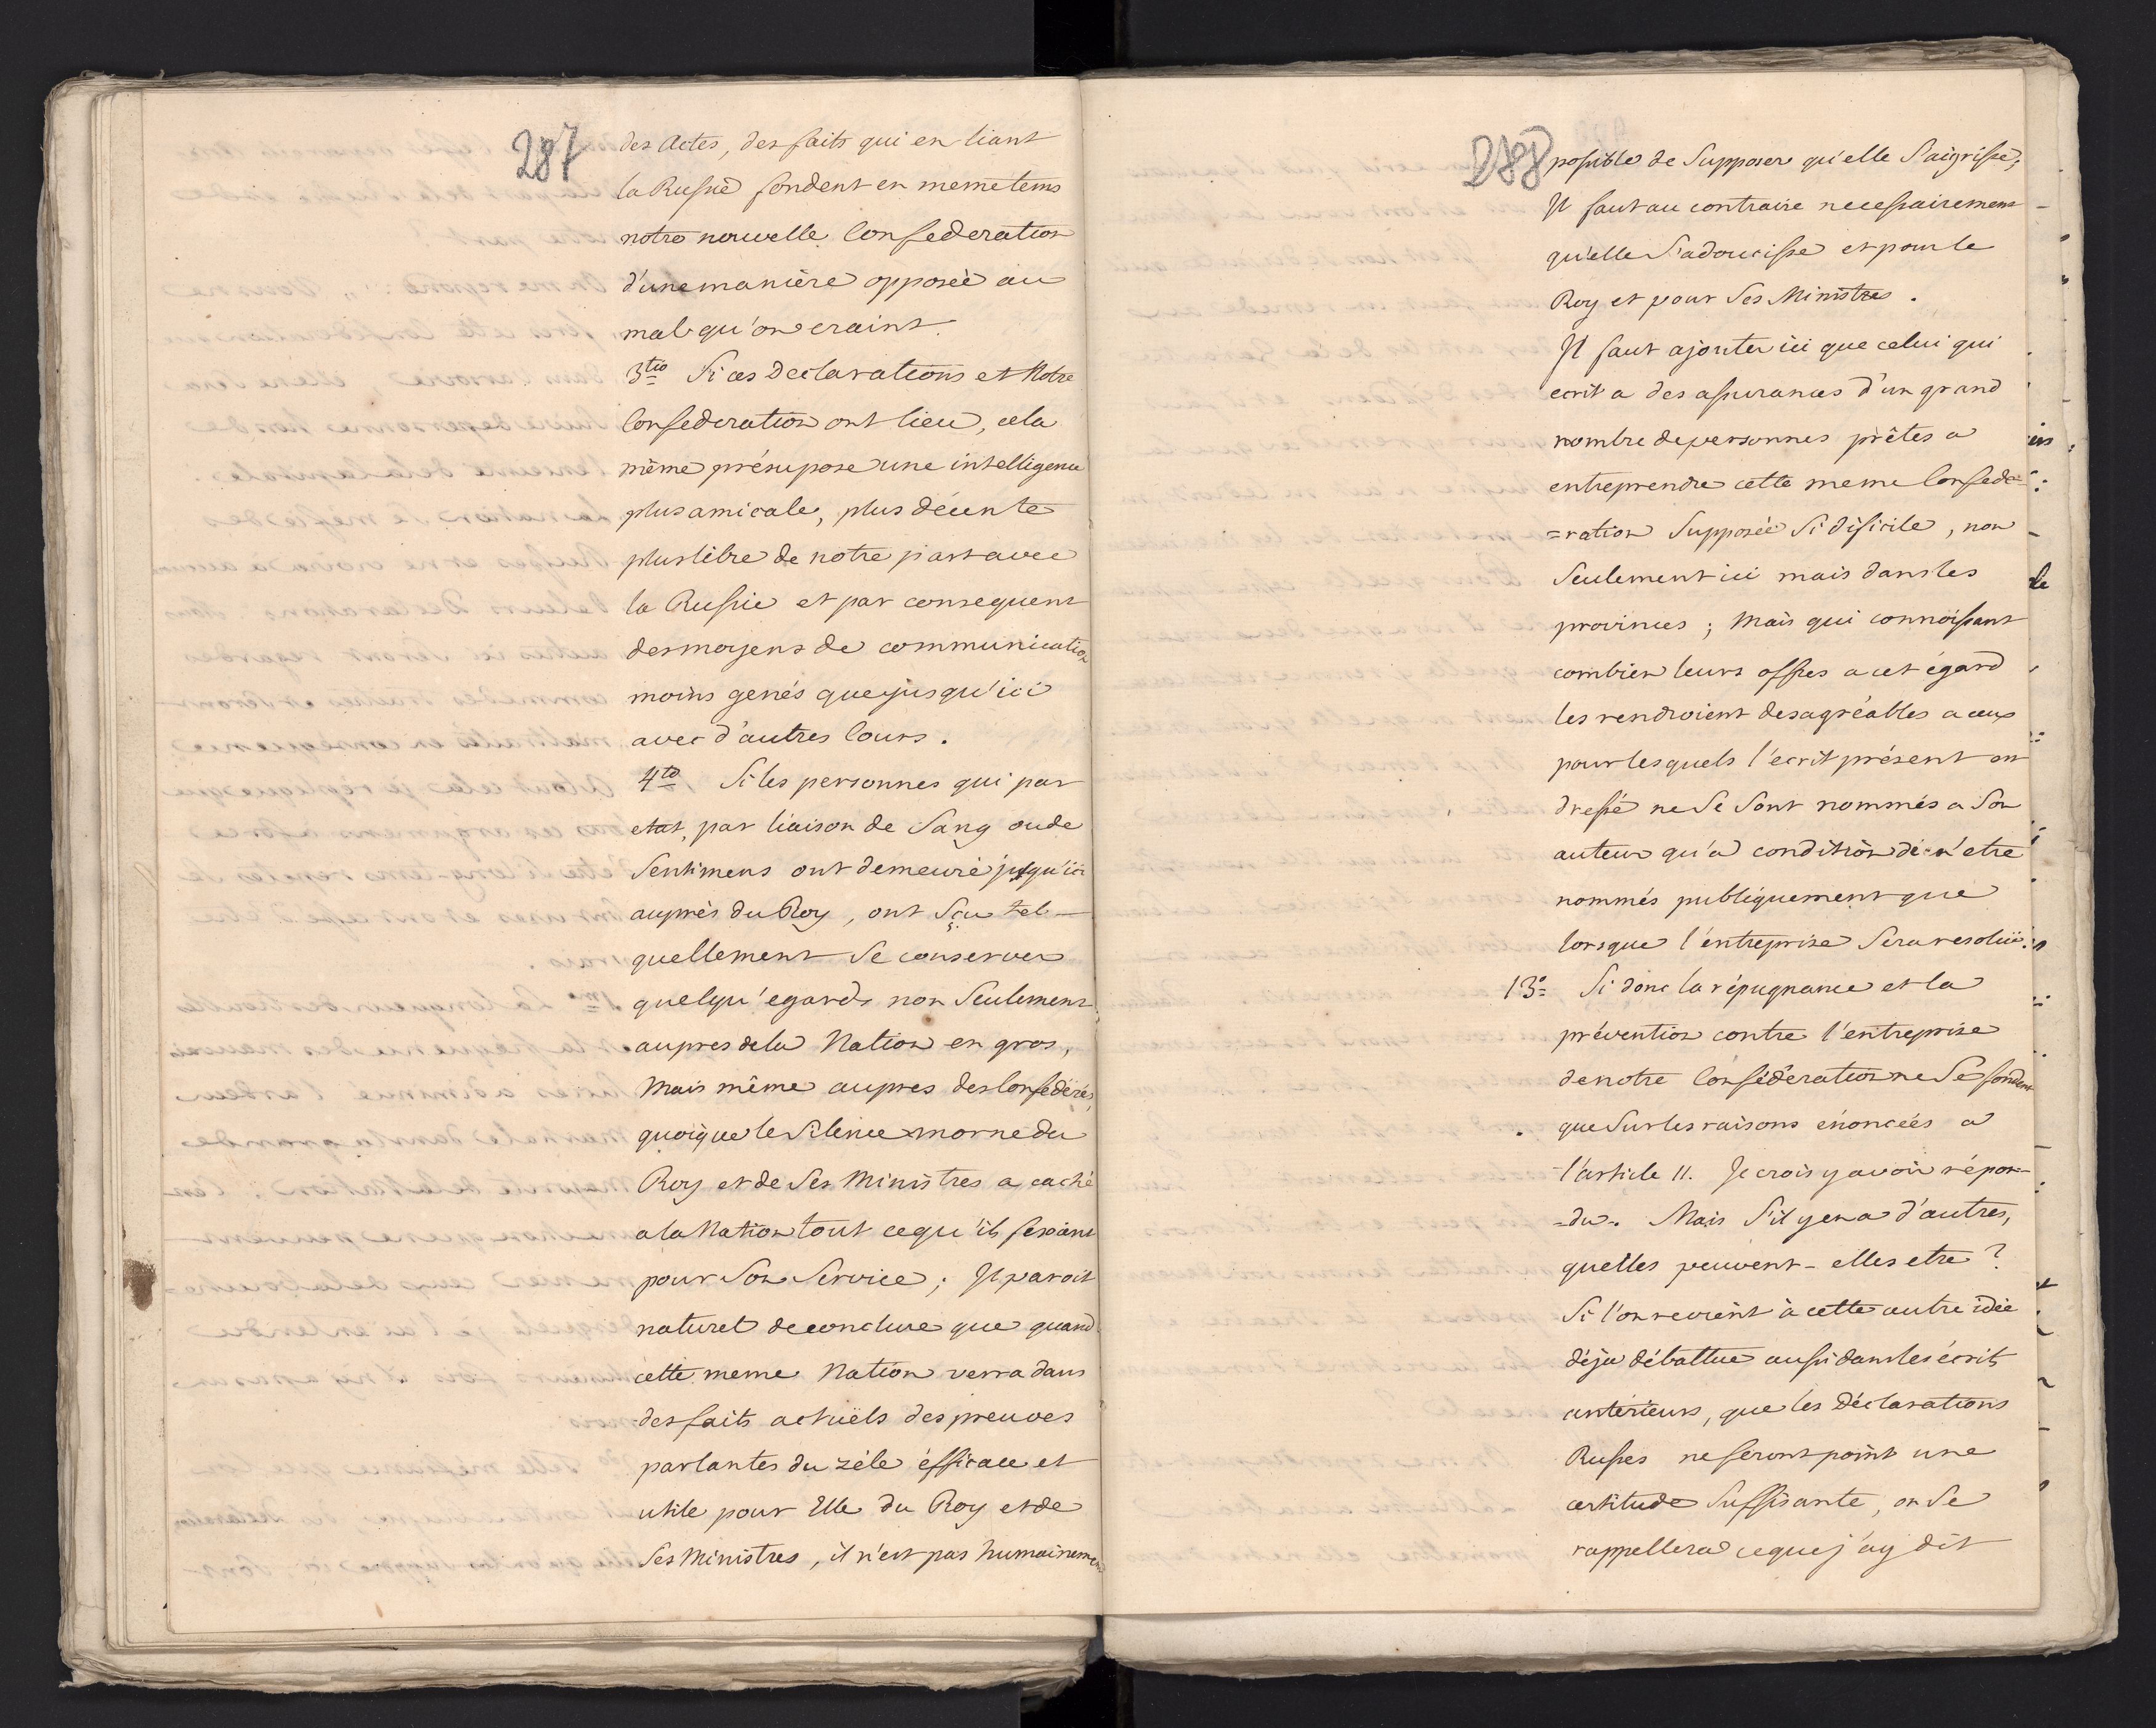 287
des Actes, des faits qui en liant
la Russie fondent en meme tems
notre nouvelle Confederation
d'une manière opposée au
mal qu'on craint.
3tio Si ces Declarations et Notre
Confederation ont lieu, cela
même présupose une intelligence
plus amicale, plus décente
plus libre de notre part avec
la Russie et par consequent
des moyens de communication
moins genés que jusqu'ici
avec d'autres Cours.
4to Si les personnes qui par
etat, par liaison de Sang ou de
Sentimens ont demeuré jusqu'ici
auprès du Roy, ont Sçu tel-
quellement Se conserver
quelqu'egards non Seulement
aupres de la Nation en gros,
Mais même aupres des Confedérés,
quoique le Silence morne du
Roy et de Ses Ministres a caché
a la Nation tout ce qu'ils fesoient
pour Son Service; Il paroit
naturel de conclure que quand
cette meme Nation verra dans
des faits actuëls des preuves
parlantes du zèle éfficace et
utile pour Elle du Roy et de
Ses Ministres, il n'est pas humainement
288
possible de Supposer qu'elle S'aigrisse,
Il faut au contraire necessairement
qu'elle S'adoucisse et pour le
Roy et pour Ses Ministres.
Il faut ajouter ici que celui qui
ecrit a des assurances d'un grand
nombre de personnes prêtes a
entreprendre cette meme Confede=
=ration Supposée Si dificile, non
Seulement ici mais dans les
provinces; Mais qui connoissant
combien leurs offres a cet égard
les rendroient desagréables a ceux
pour lesquels l'écrit présent est
dressé ne Se Sont nommés a Son
auteur qu'a condition de n'etre
nommés publiquement que
lorsque l'entreprise Sera resoluë.
13° Si donc la répugnance et la
prévention contre l'entreprise
de notre Confédération ne Se fondent
que Sur les raisons énoncées a
l'article 11. Je crois y avoir répon-
-du. Mais S'il y en a d'autres,
quelles peuvent-elles etre?
Si l'on revient à cette autre idée
déja débattue aussi dans les écrits
antérieurs, que les Déclarations
Russes ne seront point une
certitude Suffisante, on Se
rappellera ce que j'ay dit